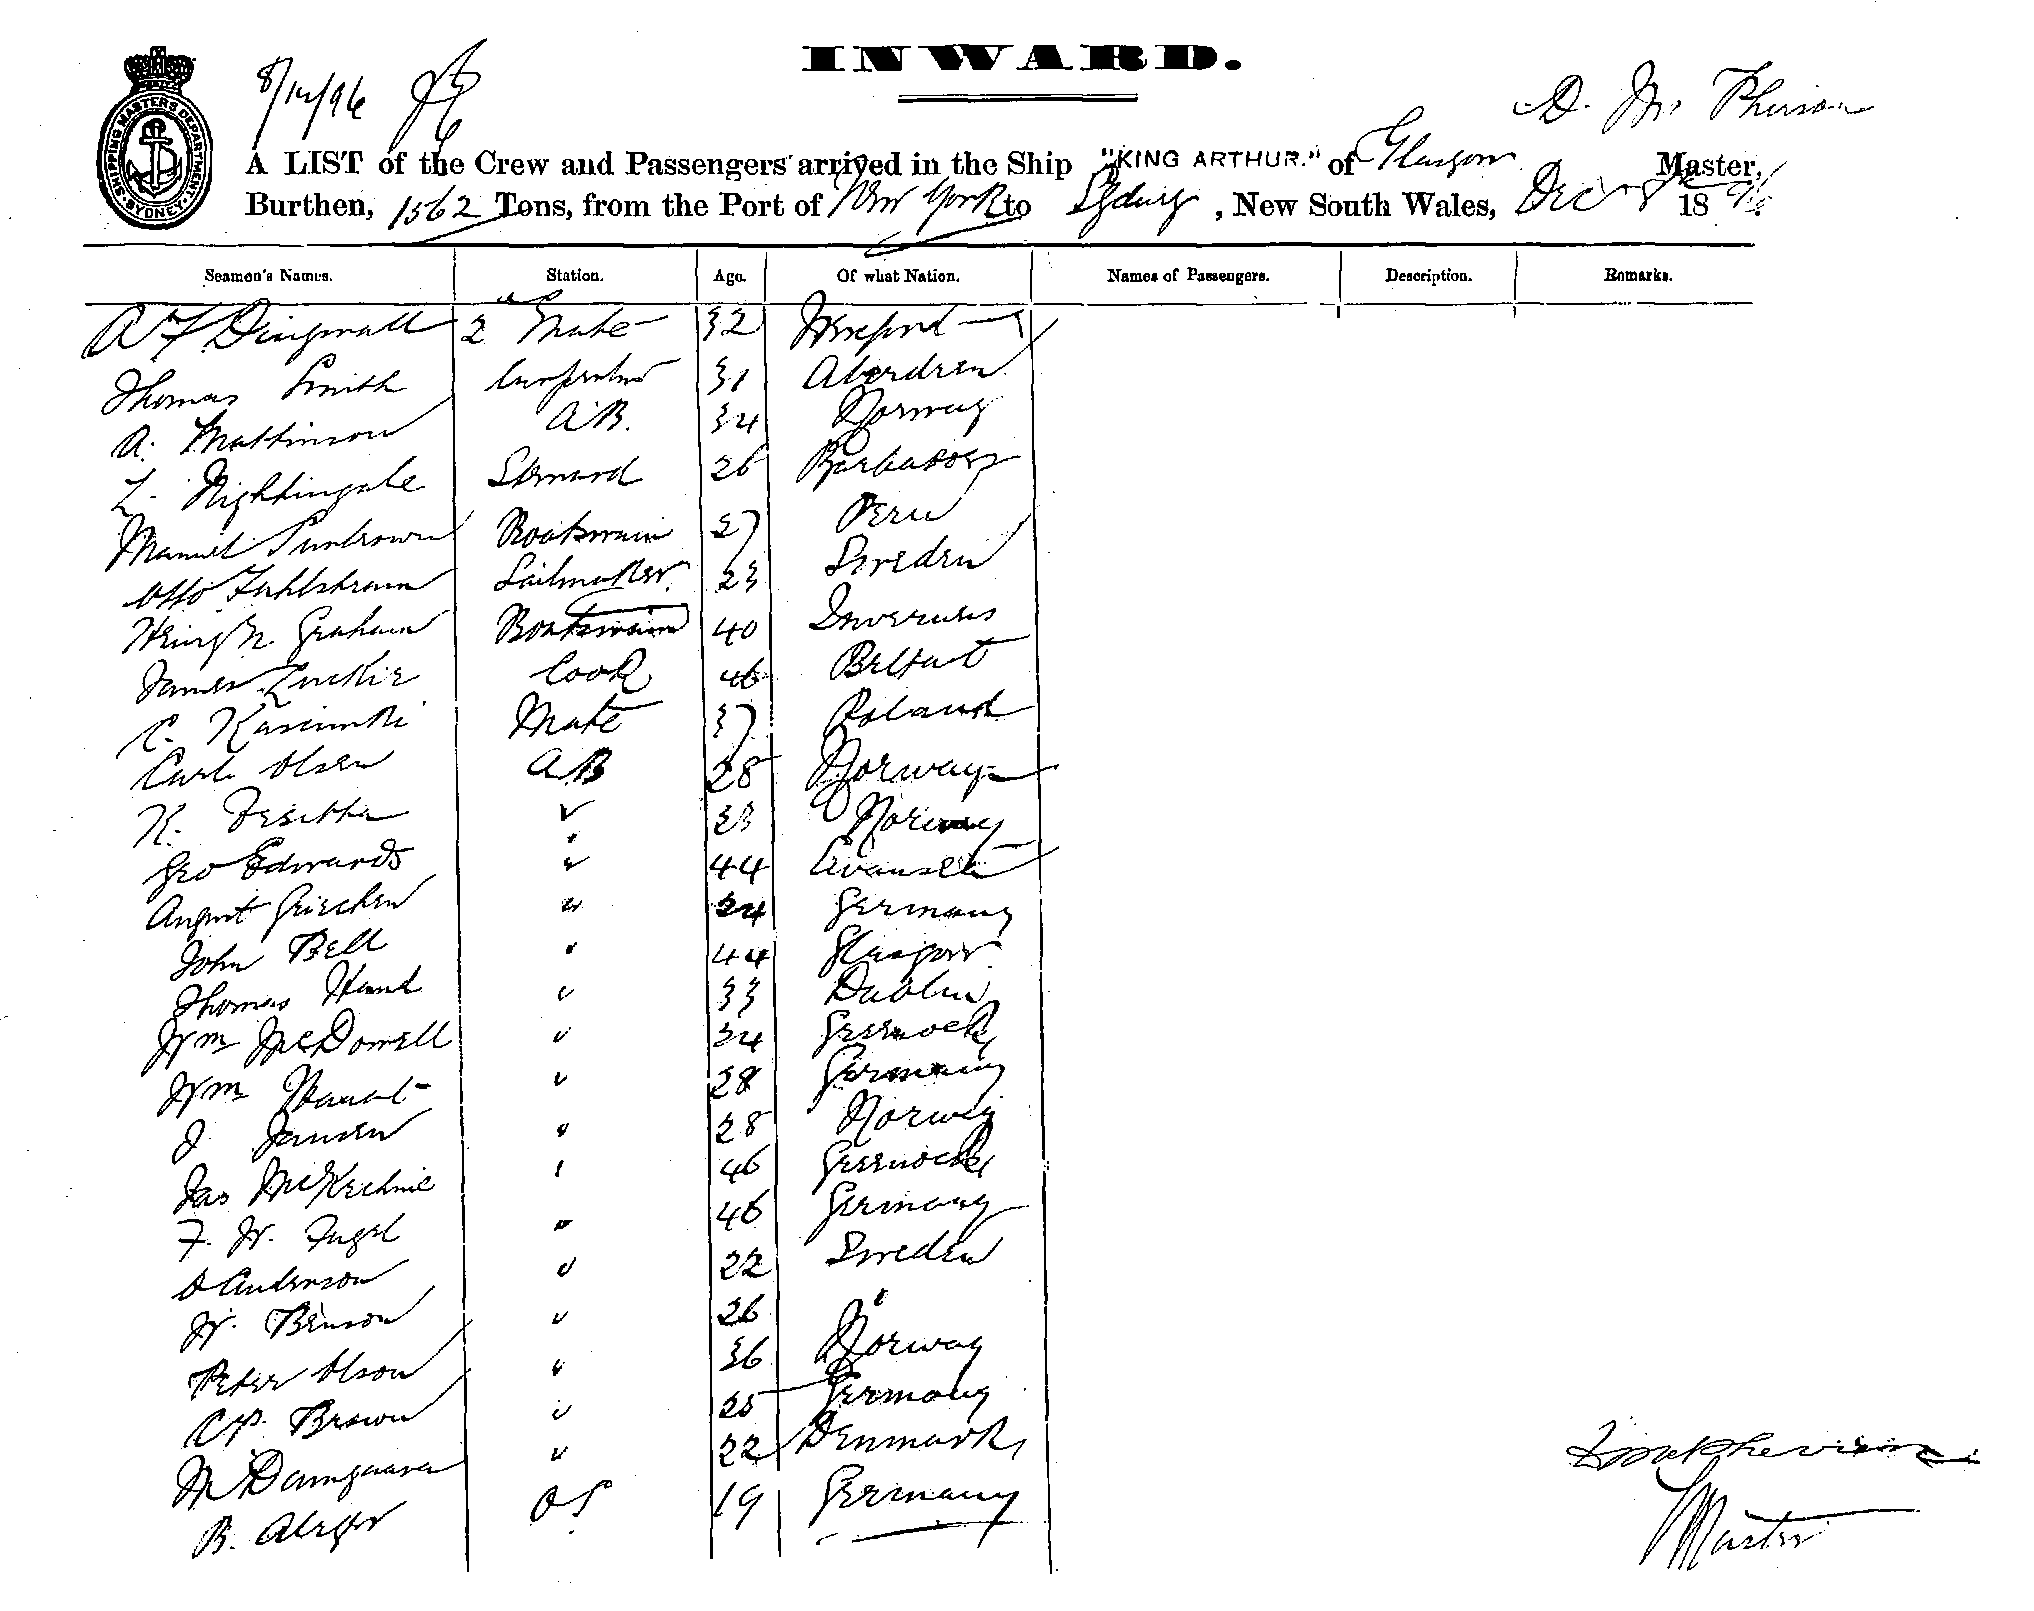 INWARD.
8/12/96
D. Mc Pherson
SHIPPING MASTERS DEPARTMENT SYDNEY
A LIST of the Crew and Passengers arrived in the Ship "KING ARTHUR." of Glasgow Master,
Burthen, 1562 Tons, from the Port of New York to Sydney, New South Wales, Dec 8th 1896
Seamen's Names. Station. Age. Of what Nation. Names of Passengers. Description. Remarks.
Dingwall 2 Mate 32
Thomas Smith Carpenter 31 Aberdeen
A. Mattinson A.B. 34 Norway
Nightingale Steward 26 Barbadoes
Manuel Boatswain 27 Peru
Otto Sailmaker 23 Sweden
Henry Graham Boatswain 40 Inverness
James Luckie Cook 46 Belfast
C. Mate 37 Poland
Carl Olsen AB 28 Norway
K. 33 Norway
Geo Edwards " 44
August Griechen " 24 Germany
John Bell " 44 Glasgow
Thomas Hand " 33 Dublin
Wm McDowell " 34 Greenock
Wm " 28 Germany
J Jansen " 28 Norway
Jas McKechnie " 46 Greenock
F. W. Fugel " 46 Germany
Anderson " 22 Sweden
W. Benson " 26 "
Peter Olson " 36 Norway
C.P. Brown " 25 Germany
M Damgaard " 22 Denmark
B. OS 19 Germany
Master